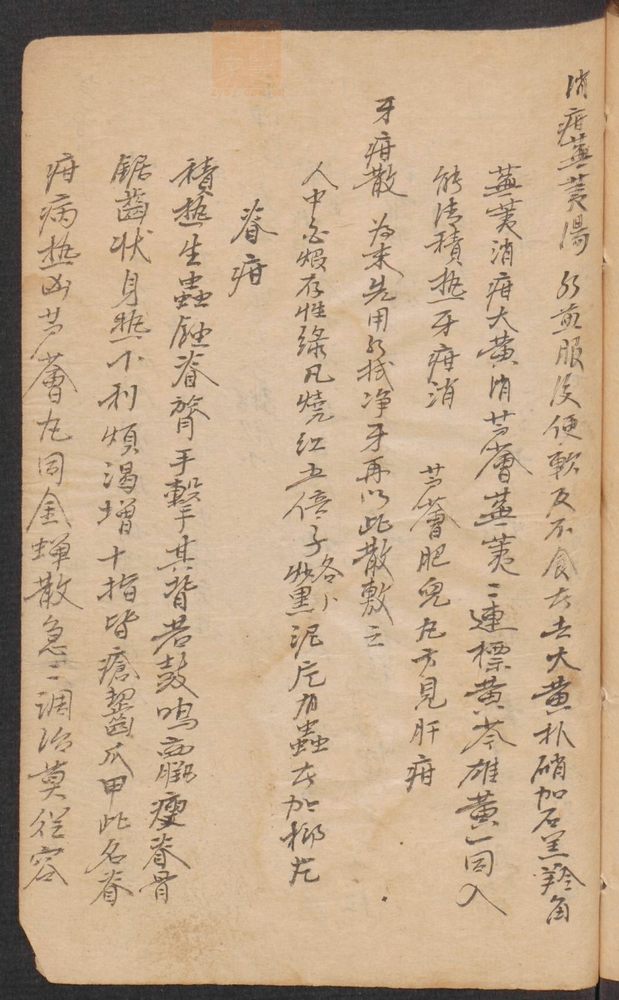 消疳蕪荑湯 水煎服後便軟及不食者去大黃朴硝加石羔羚角
蕪荑消疳大黃消芦薈蕪荑二連標黃芩雄黃一同入
能清積热牙疳消 芦薈肥兒丸方見肝疳
牙疳散 为末先用水拭净牙再以此散敷之
人中白煅存性绿凡燒红五倍子炒黑各 泥 有蟲者加梹
脊疳
積热生蟲蝕脊膂手擊其背若鼓鳴羸瘦脊骨
鋸齒狀身热下利煩渴增十指皆瘡齧爪甲此名脊
疳病热凶芦薈丸同金蝉散急二調治莫從容